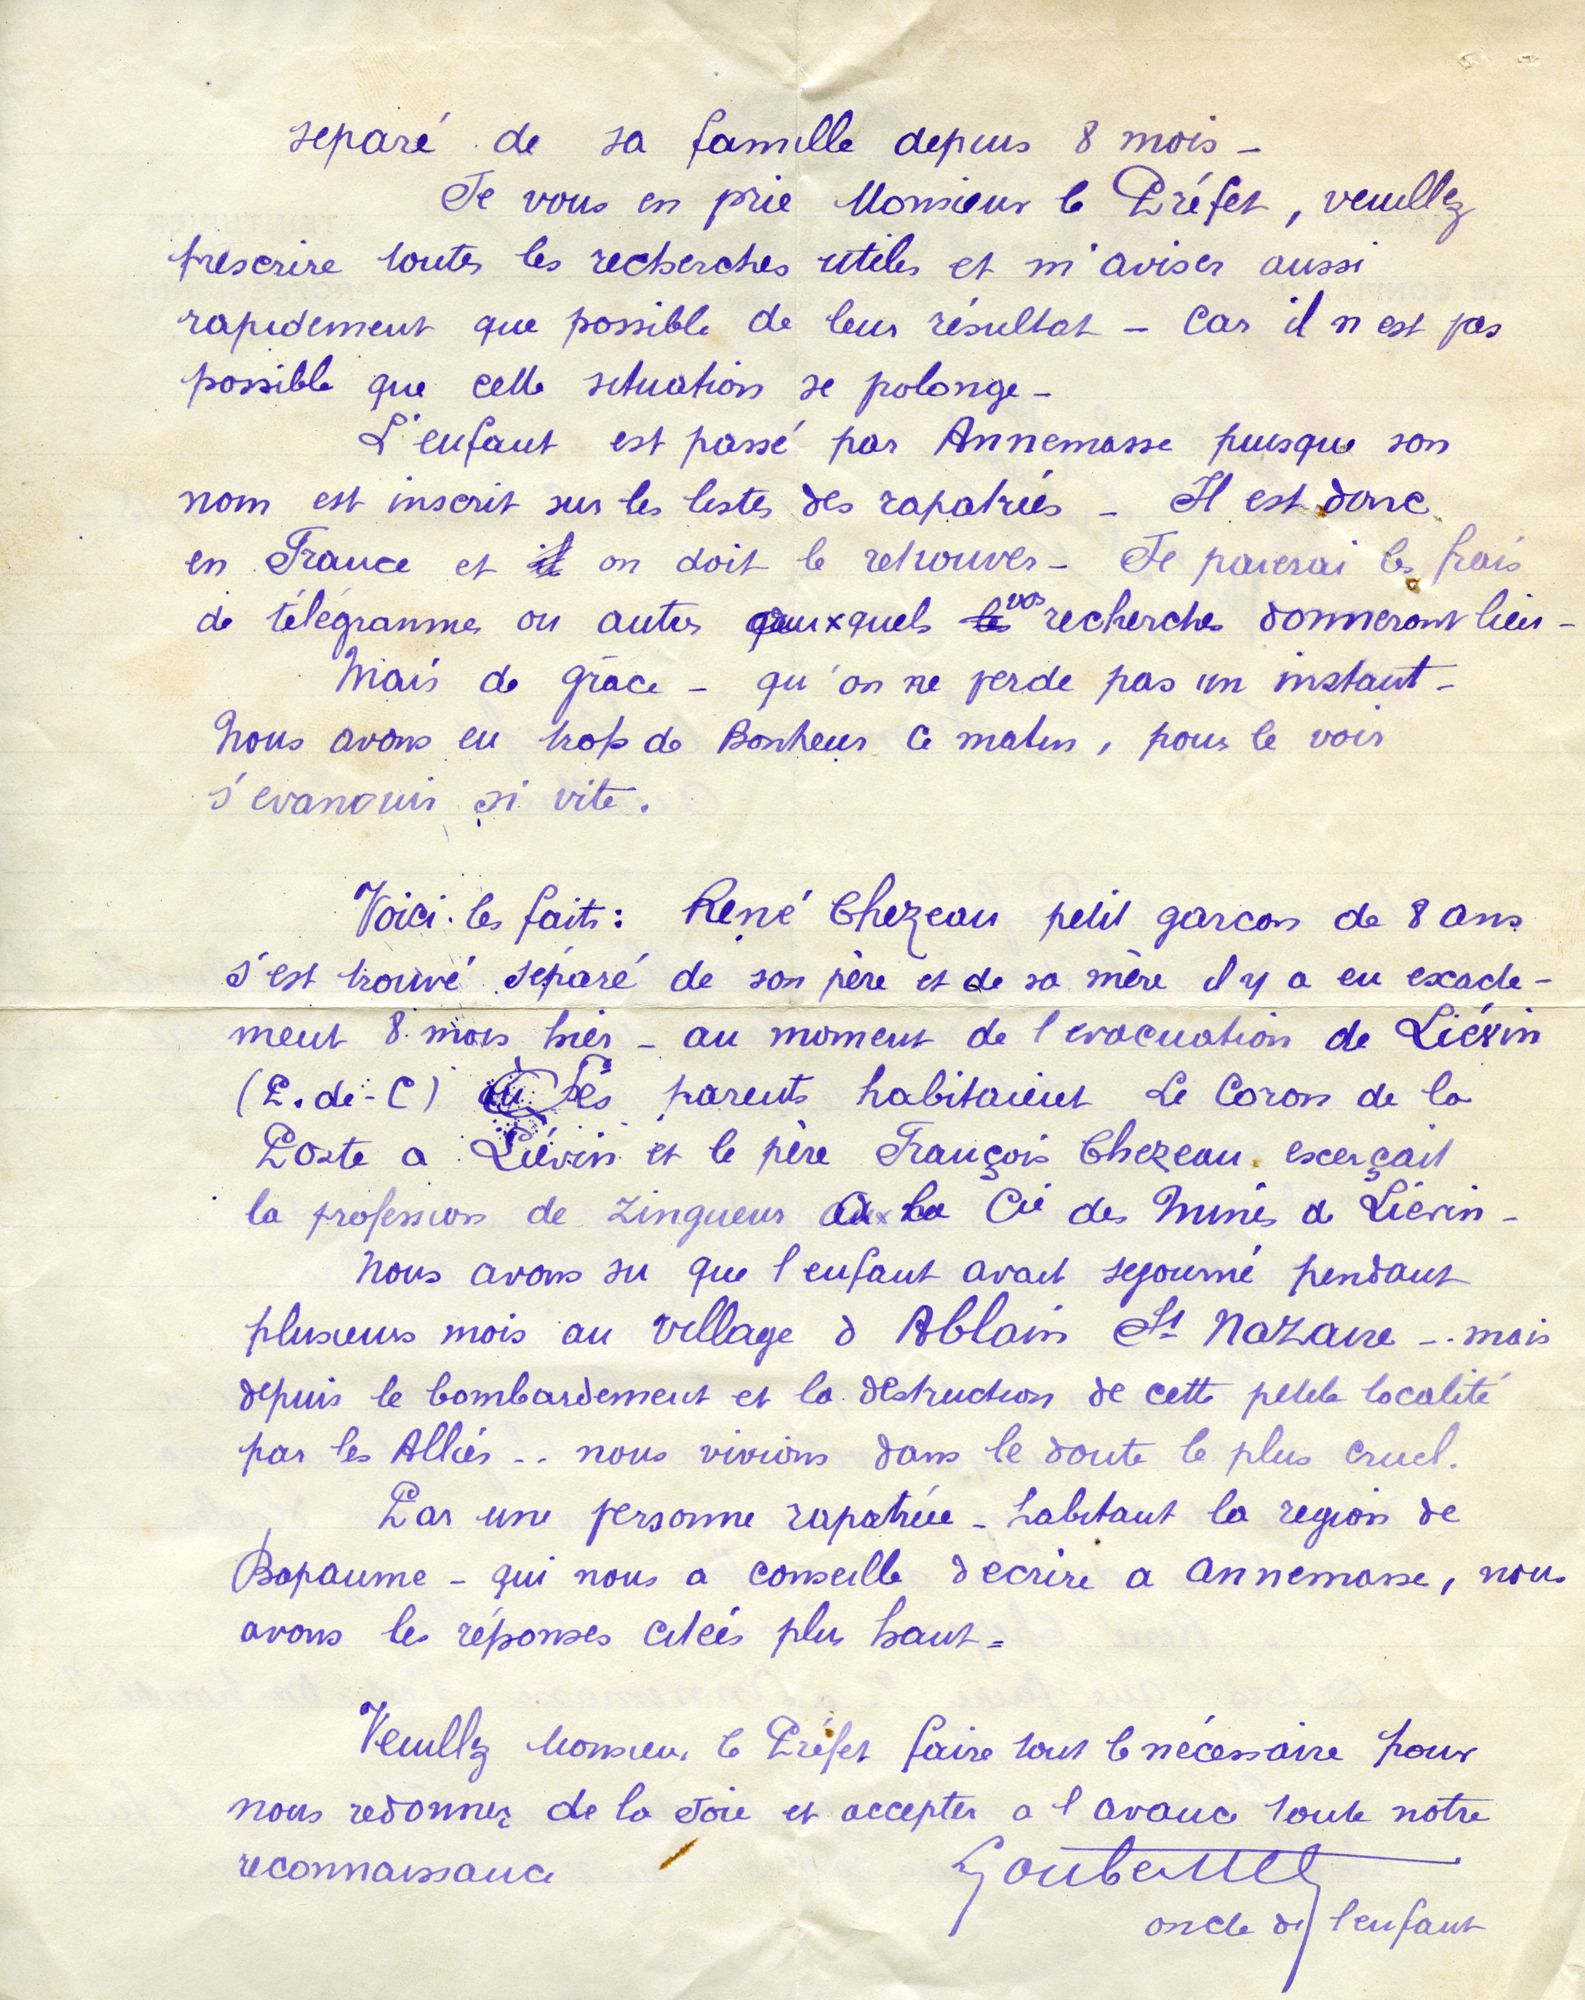 séparé de sa famille depuis 8 mois –
Je vous en prie Monsieur le Préfet, veuillez
prescrire toutes les recherches utiles et m'aviser aussi
rapidement que possible de leur résultat – Car il n'est pas
possible que cette situation se polonge –
L'enfant est passé par Annemasse puisque son
nom est inscrit sur les listes des rapatriés – Il est donc
en France et il on doit le retrouver – Je paierai les frais
de télégrammes ou autres auxquels les vos recherches donneront lieu –
Mais de grâce – qu'on ne perde pas un instant –
Nous avons eu trop de Bonheur ce matin, pour le voir
s'evanouir si vite.
Voici les faits : René Chezeau petit garcon de 8 ans
s'est trouvé séparé de son père et de sa mère il y a eu exacte-
ment 8 mois hier – au moment de l'evacuation de Liévin
(P.-de-C) Ses parents habitaient Le Coron de la
Poste a Liévin et le père François Chezeau exerçait
la profession de Zingueur a la Cie des Mines de Liévin –
Nous avons su que l'enfant avait sejourné pendant
plusieurs mois au village d'Ablain St Nazaire – . mais
depuis le bombardement et la destruction de cette petite localité
par les Alliés – . . nous vivions dans le doute le plus cruel.
Par une personne rapatriée – habitant la region de
Bapaume – qui nous a conseille d'ecrire a Annemasse, nous
avons les réponses citées plus haut =
Veuillez Monsieur le Préfet faire tout le nécessaire pour
nous redonner de la Joie et accepter a l'avance toute notre
reconnaissance
oncle de l'enfant